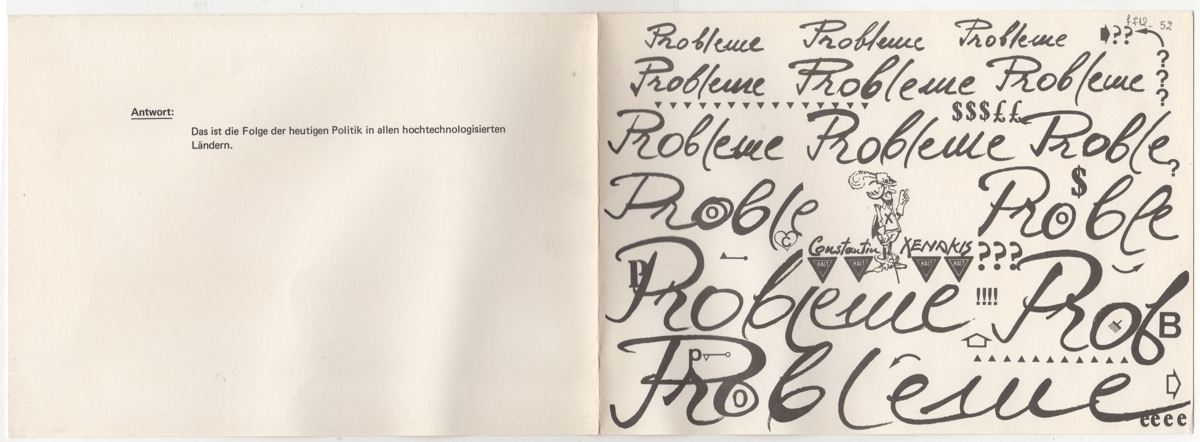 Antwort:
Das ist die Folge der heutigen Politik in allen hochtechnologisierten
Ländern.
52
Probleme Probleme Probleme ??
?
Probleme Probleme Probleme ?
?
$$$££
Probleme Probleme Proble
?
$
Proble Proble
C
X
Constantin XENAKIS ???
HALT HALT HALT HALT
P
Probleme !!!! Prob
B
P
Probleme
O
eeee